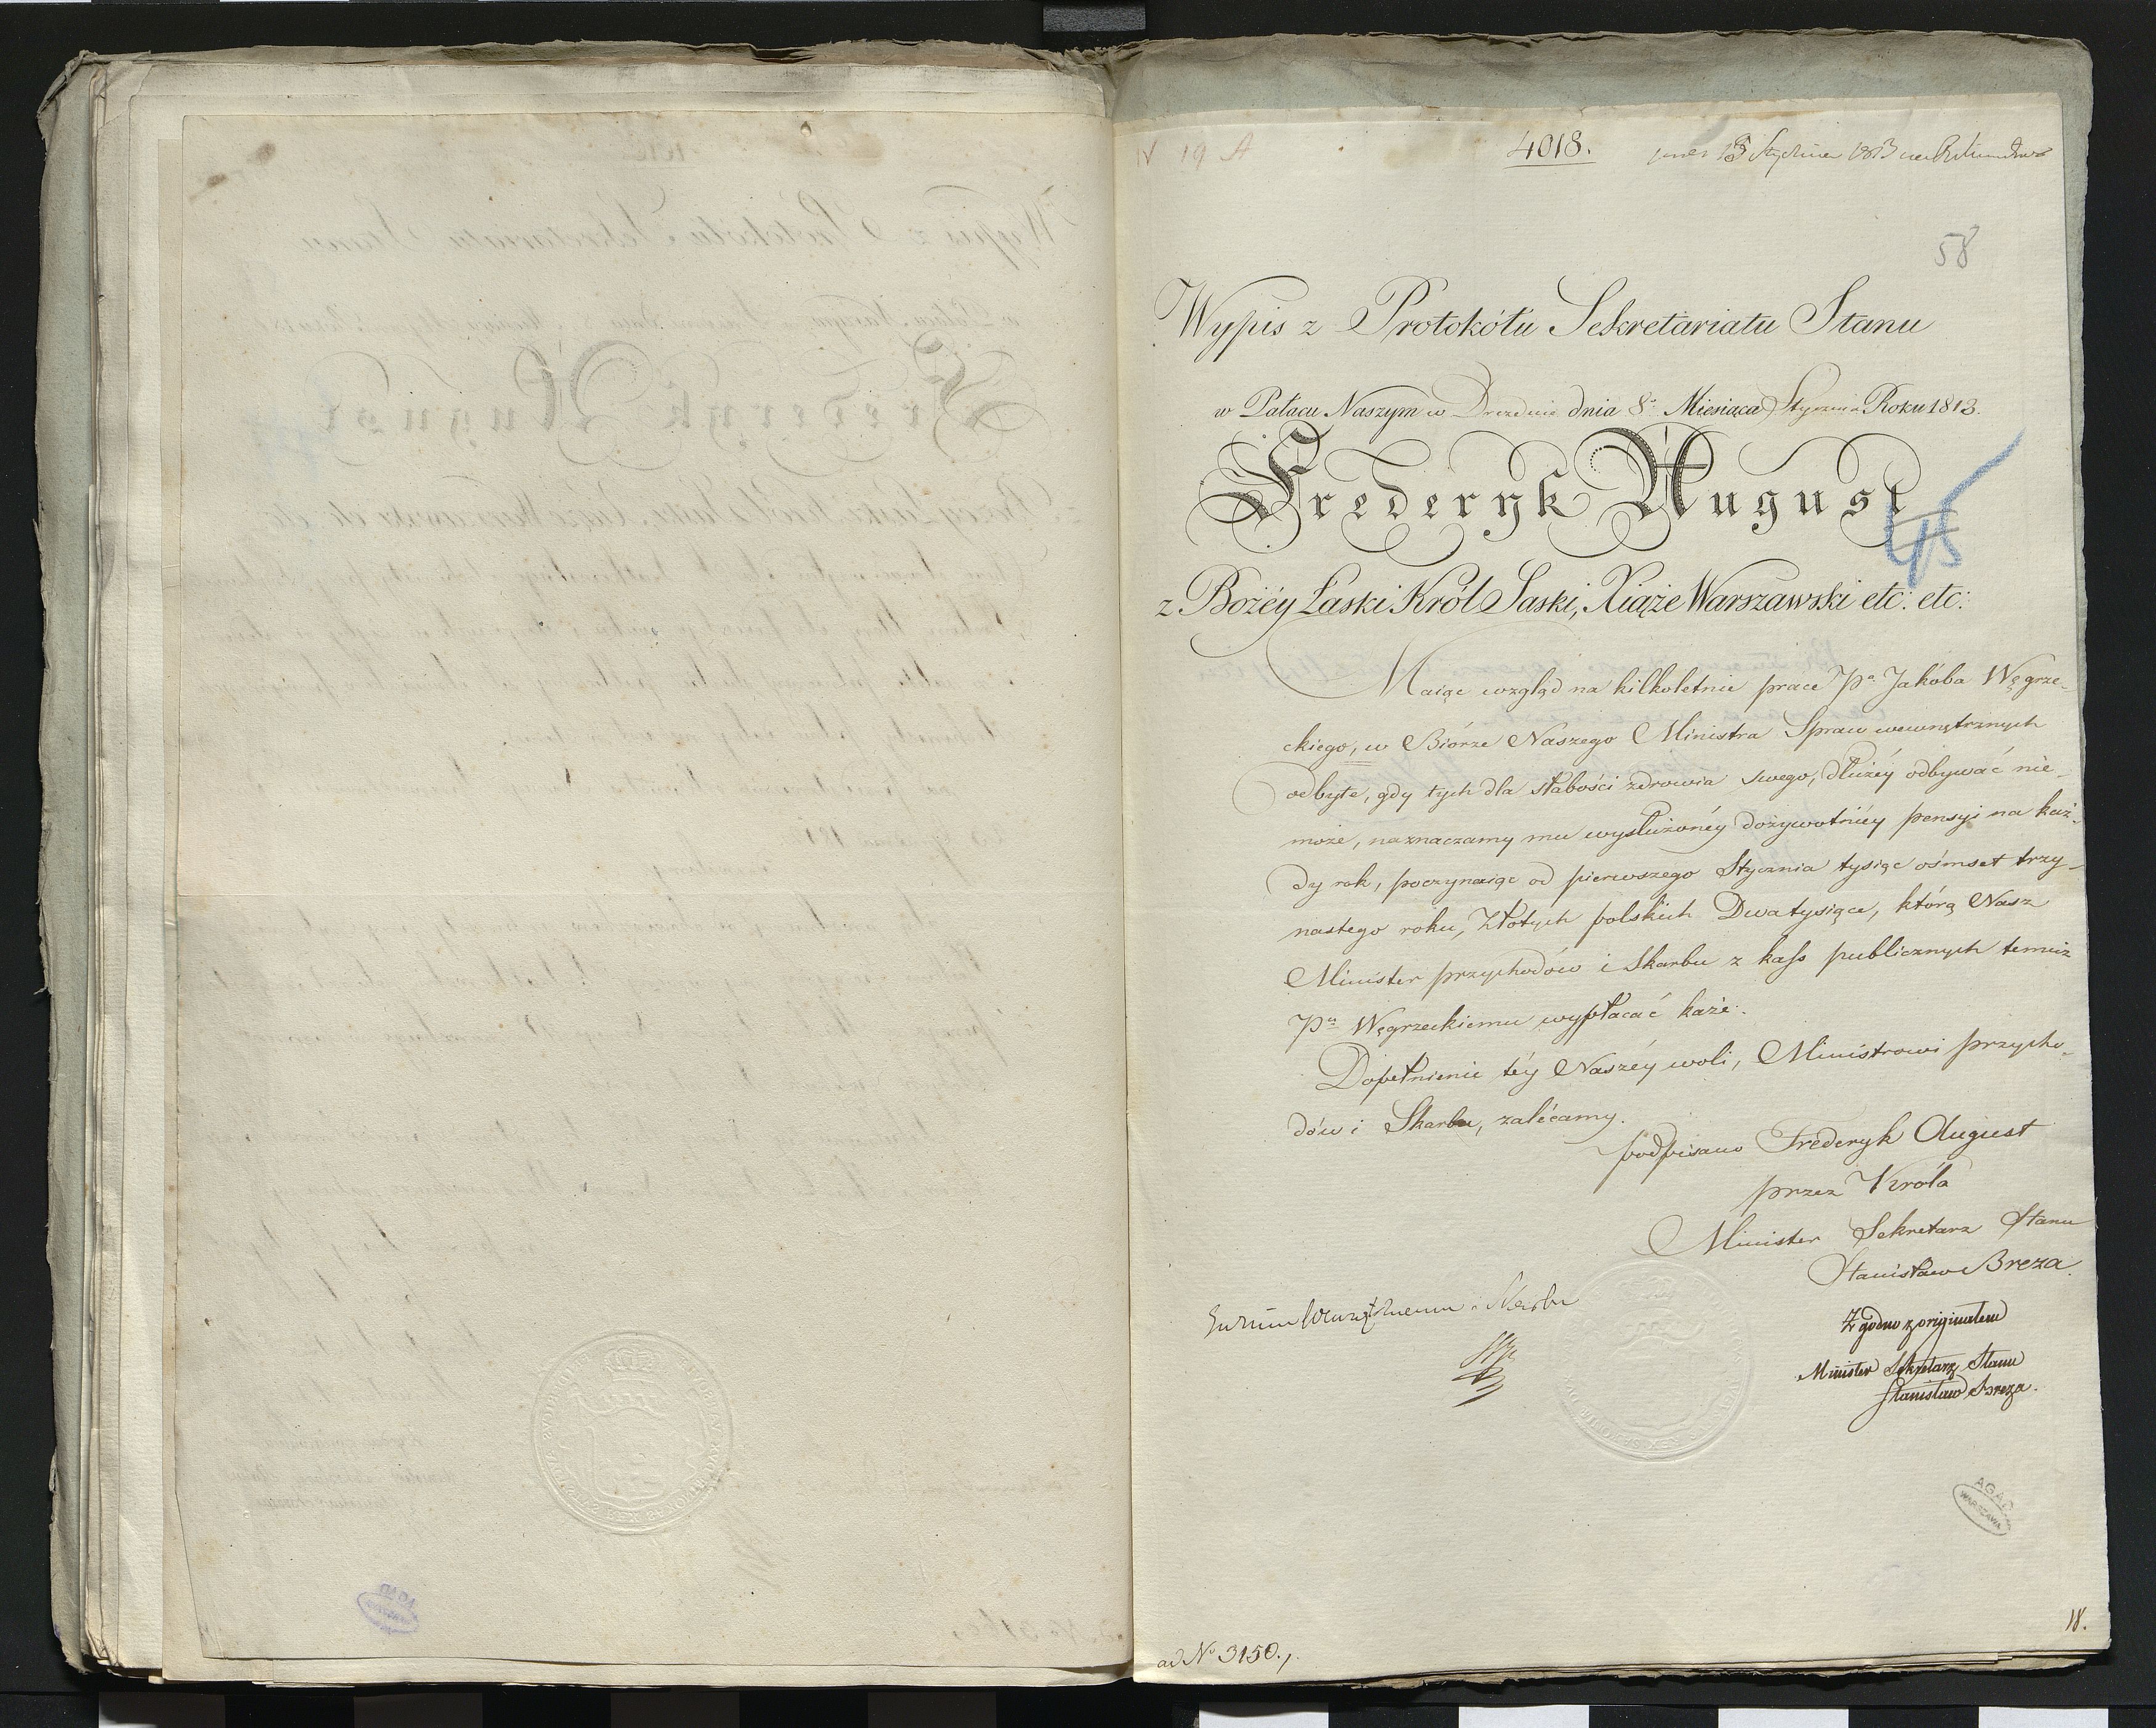 IV 19 A
4018.
15 Stycznia 1813
58
Wypis z Protokółu Sekretariatu Stanu
w Pałacu Naszym w Dreźnie dnia 8o Miesiąca Stycznia Roku 1813.
Frederyk August
45
z Bożéy Łaski Król Saski, Xiąże Warszawski etc: etc:
Maiąc wzgląd na kilkoletnie prace Pa Jakóba Węgrze-
ckiego, w Biórze Naszego Ministra Spraw wewnętrznych
odbyte, gdy tych dla słabości zdrowia swego, dłużéy odbywać nie-
może, naznaczamy mu wysłużonéy dożywotniéy pensyi na każ-
dy rok, poczynaiąc od pierwszego Stycznia tysiąc ośmset trzy-
nastego roku, Złotych polskich Dwatysiące, którą Nasz
Minister przychodów i Skarbu z kass publicznych temuż
Pu Węgrzeckiemu wypłacać każe.
Dopełnienie téy Naszéy woli, Ministrowi przycho-
dów i Skarbu, zalécamy.
podpisano Frederyk August
przez Króla
Minister Sekretarz Stanu
Stanisław Breza.
Zgodno z originałem
Minister Sekretarz Stanu
Stanisław Breza.
AGAD
WARSZAWA
18.
ad No 3150.,